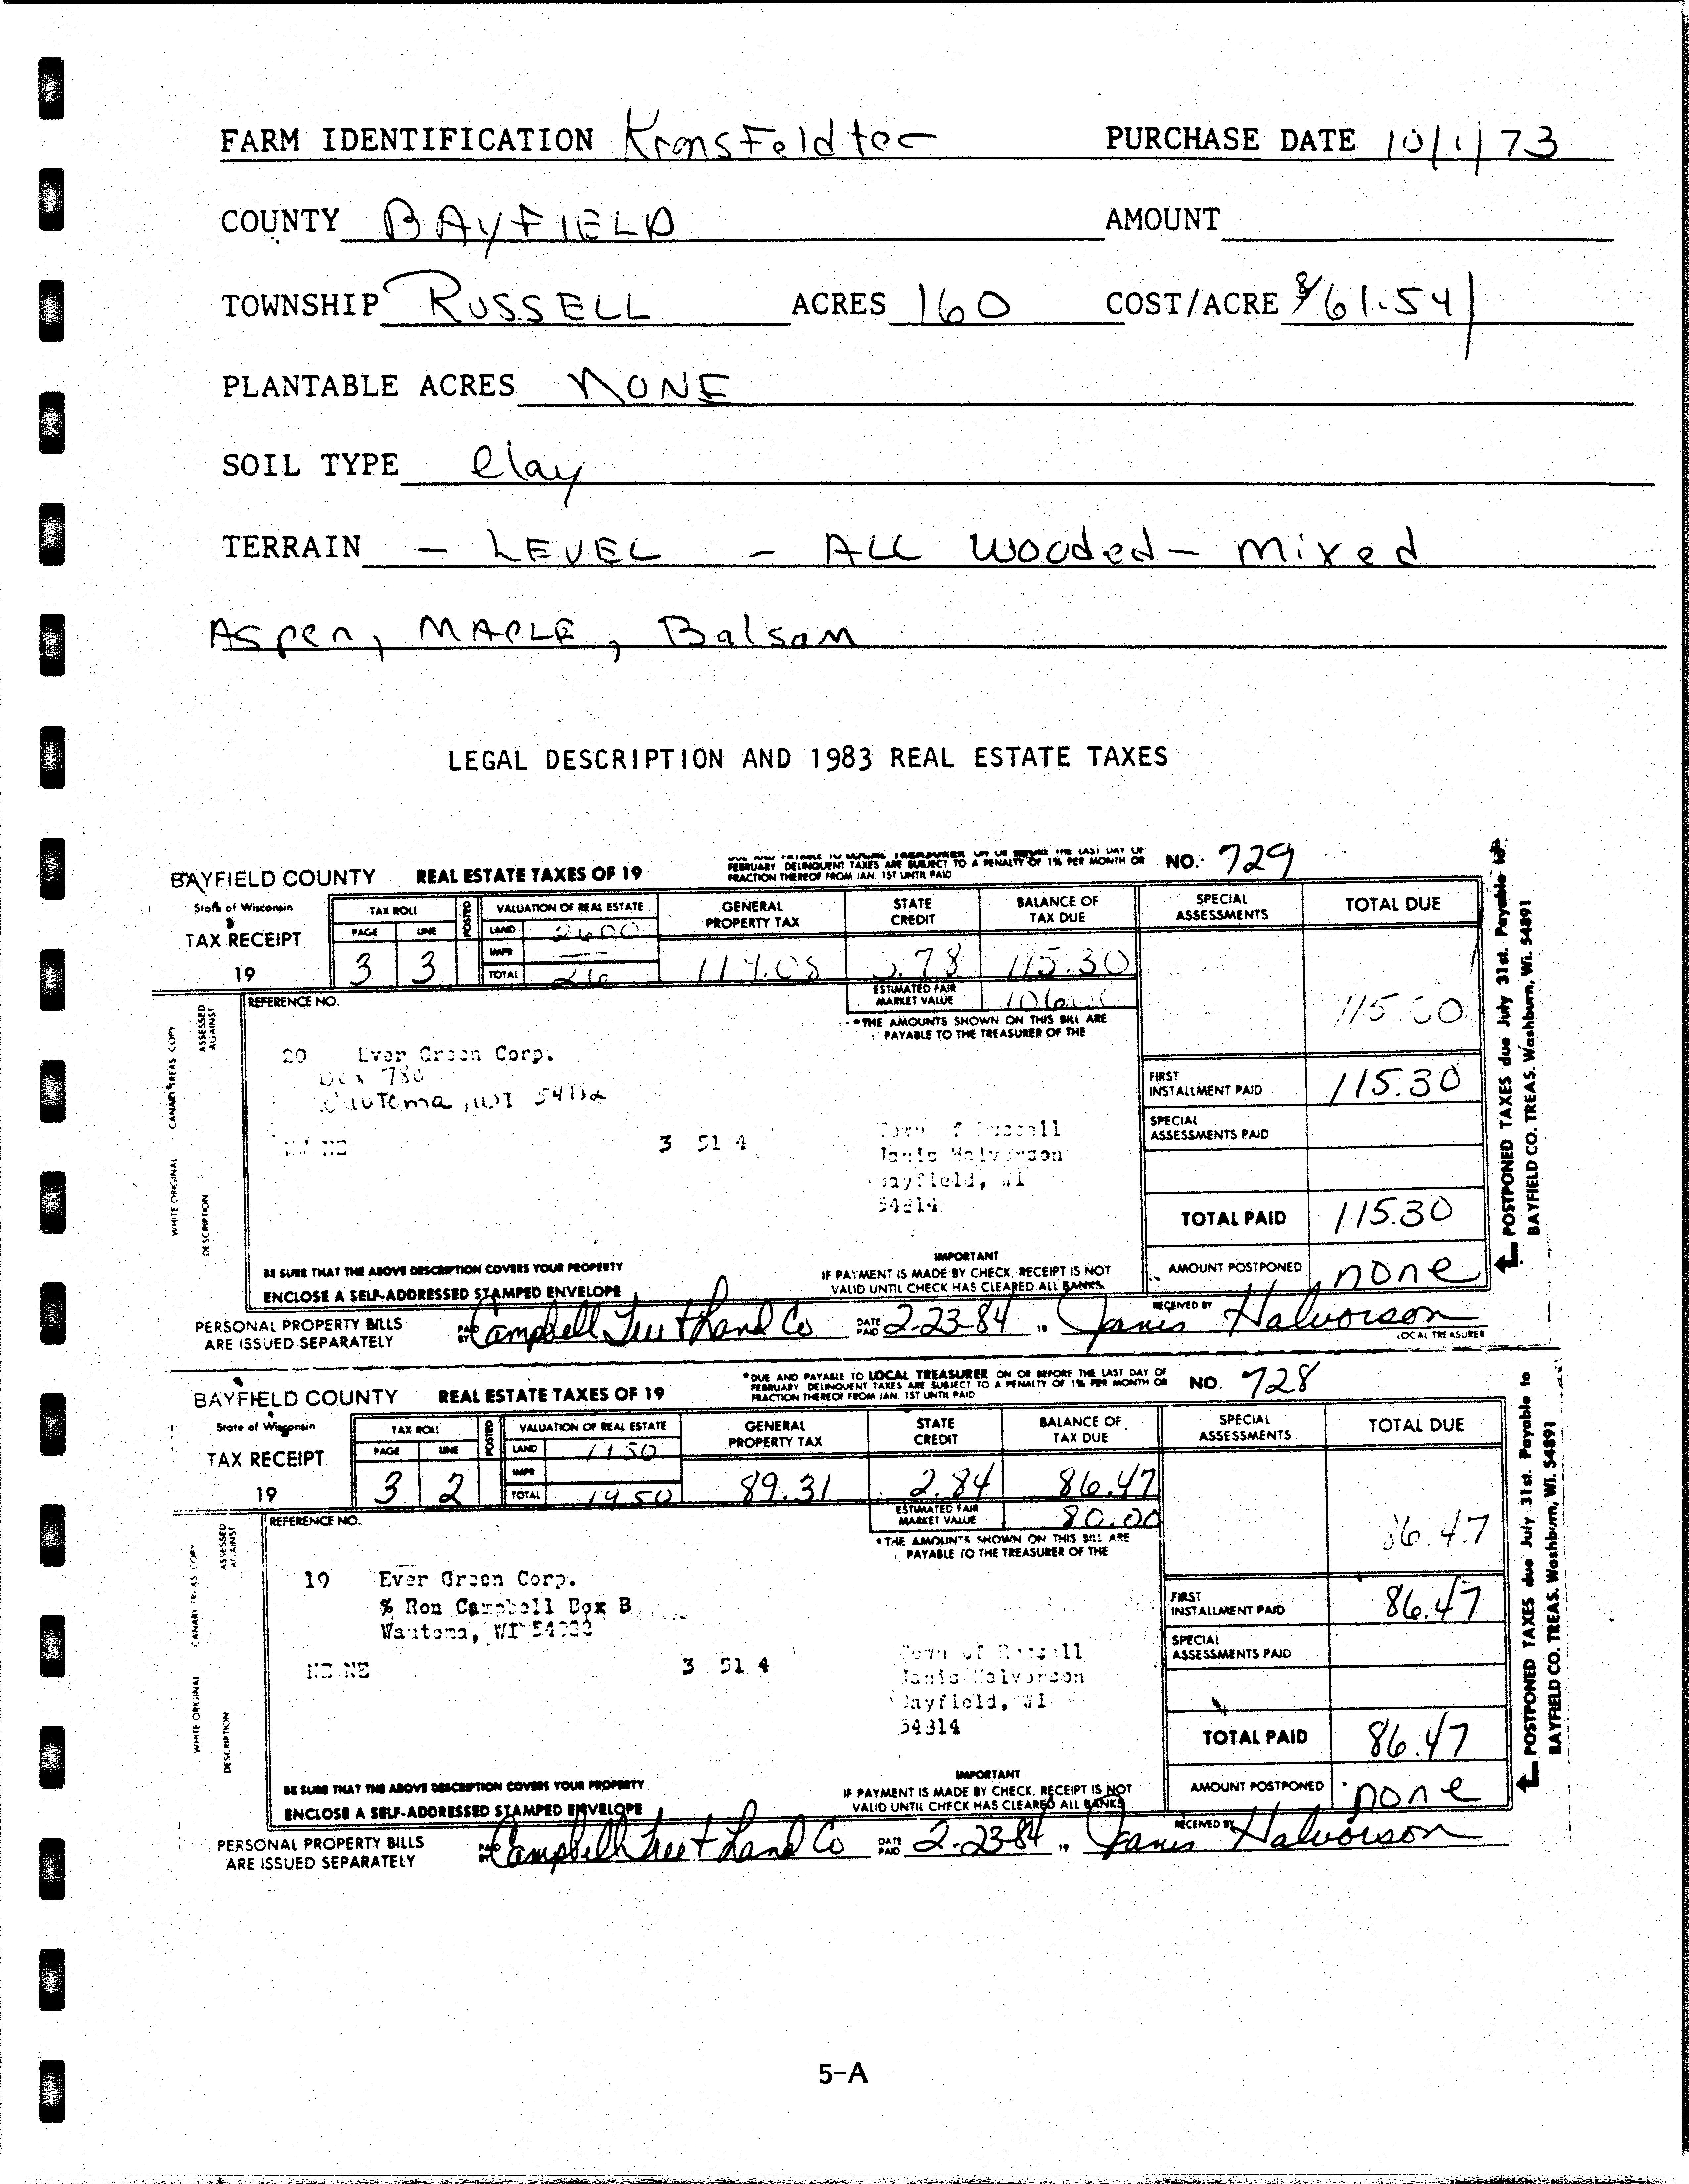 FARM IDENTIFICATION Kronsfeldter PURCHASE DATE 10/1/73
COUNTY BAYFIELD AMOUNT
TOWNSHIP RUSSELL ACRES 160 COST/ACRE $61.54
PLANTABLE ACRES NONE
SOIL TYPE clay
TERRAIN - LEVEL - ALL Wooded - Mixed
Aspen, MAPLE, Balsam
LEGAL DESCRIPTION AND 1983 REAL ESTATE TAXES
DUE AND PAYABLE TO LOCAL TREASURER ON OR BEFORE THE LAST DAY OF
FEBRUARY DELINQUENT TAXES ARE SUBJECT TO A PENALTY OF 1% PER MONTH OR
FRACTION THEREOF FROM JAN. 1ST UNTIL PAID
NO. 729
BAYFIELD COUNTY REAL ESTATE TAXES OF 19
State of Wisconsin
TAX RECEIPT
19
TAX ROLL POSTED VALUATION OF REAL ESTATE GENERAL PROPERTY TAX STATE CREDIT BALANCE OF TAX DUE SPECIAL ASSESSMENTS TOTAL DUE
PAGE LINE LAND 2600
IMPR
3 3 TOTAL 26 115.30
ESTIMATED FAIR
MARKET VALUE
REFERENCE NO.
*THE AMOUNTS SHOWN ON THIS BILL ARE
PAYABLE TO THE TREASURER OF THE
ASSESSED AGAINST
20 Ever Green Corp.
Box 780
Wautoma, WI
3 51 4
Town of Russell
Janis Halvorson
Bayfield, WI
54814
FIRST
INSTALLMENT PAID 115.30
SPECIAL
ASSESSMENTS PAID
TOTAL PAID 115.30
AMOUNT POSTPONED none
WHITE ORIGINAL CANARY TREAS COPY
DESCRIPTION
BE SURE THAT THE ABOVE DESCRIPTION COVERS YOUR PROPERTY
ENCLOSE A SELF-ADDRESSED STAMPED ENVELOPE
IMPORTANT
IF PAYMENT IS MADE BY CHECK, RECEIPT IS NOT
VALID UNTIL CHECK HAS CLEARED ALL BANKS.
PERSONAL PROPERTY BILLS
ARE ISSUED SEPARATELY
PAID BY Campbell Tree & Land Co DATE PAID 2-23-84 19 RECEIVED BY Janis Halvorson
LOCAL TREASURER
POSTPONED TAXES due July 31st. Payable to
BAYFIELD CO. TREAS. Washburn, Wi. 54891
*DUE AND PAYABLE TO LOCAL TREASURER ON OR BEFORE THE LAST DAY OF
FEBRUARY DELINQUENT TAXES ARE SUBJECT TO A PENALTY OF 1% PER MONTH OR
FRACTION THEREOF FROM JAN. 1ST UNTIL PAID
NO. 728
BAYFIELD COUNTY REAL ESTATE TAXES OF 19
State of Wisconsin
TAX RECEIPT
19
TAX ROLL POSTED VALUATION OF REAL ESTATE GENERAL PROPERTY TAX STATE CREDIT BALANCE OF TAX DUE SPECIAL ASSESSMENTS TOTAL DUE
PAGE LINE LAND
IMPR
3 2 TOTAL 1950 89.31 2.84 86.47
ESTIMATED FAIR
MARKET VALUE 80.00
86.47
REFERENCE NO.
*THE AMOUNTS SHOWN ON THIS BILL ARE
PAYABLE TO THE TREASURER OF THE
ASSESSED AGAINST
19 Ever Green Corp.
% Ron Campbell Box B
Wautoma, WI
NE NE 3 51 4
Town of Russell
Janis Halvorson
Bayfield, WI
54814
FIRST
INSTALLMENT PAID 86.47
SPECIAL
ASSESSMENTS PAID
TOTAL PAID 86.47
AMOUNT POSTPONED none
WHITE ORIGINAL CANARY TREAS COPY
DESCRIPTION
BE SURE THAT THE ABOVE DESCRIPTION COVERS YOUR PROPERTY
ENCLOSE A SELF-ADDRESSED STAMPED ENVELOPE
IMPORTANT
IF PAYMENT IS MADE BY CHECK, RECEIPT IS NOT
VALID UNTIL CHECK HAS CLEARED ALL BANKS
PERSONAL PROPERTY BILLS
ARE ISSUED SEPARATELY
PAID BY Campbell Tree & Land Co DATE PAID 2-23-84 19 RECEIVED BY Janis Halvorson
POSTPONED TAXES due July 31st. Payable to
BAYFIELD CO. TREAS. Washburn, Wi. 54891
5-A